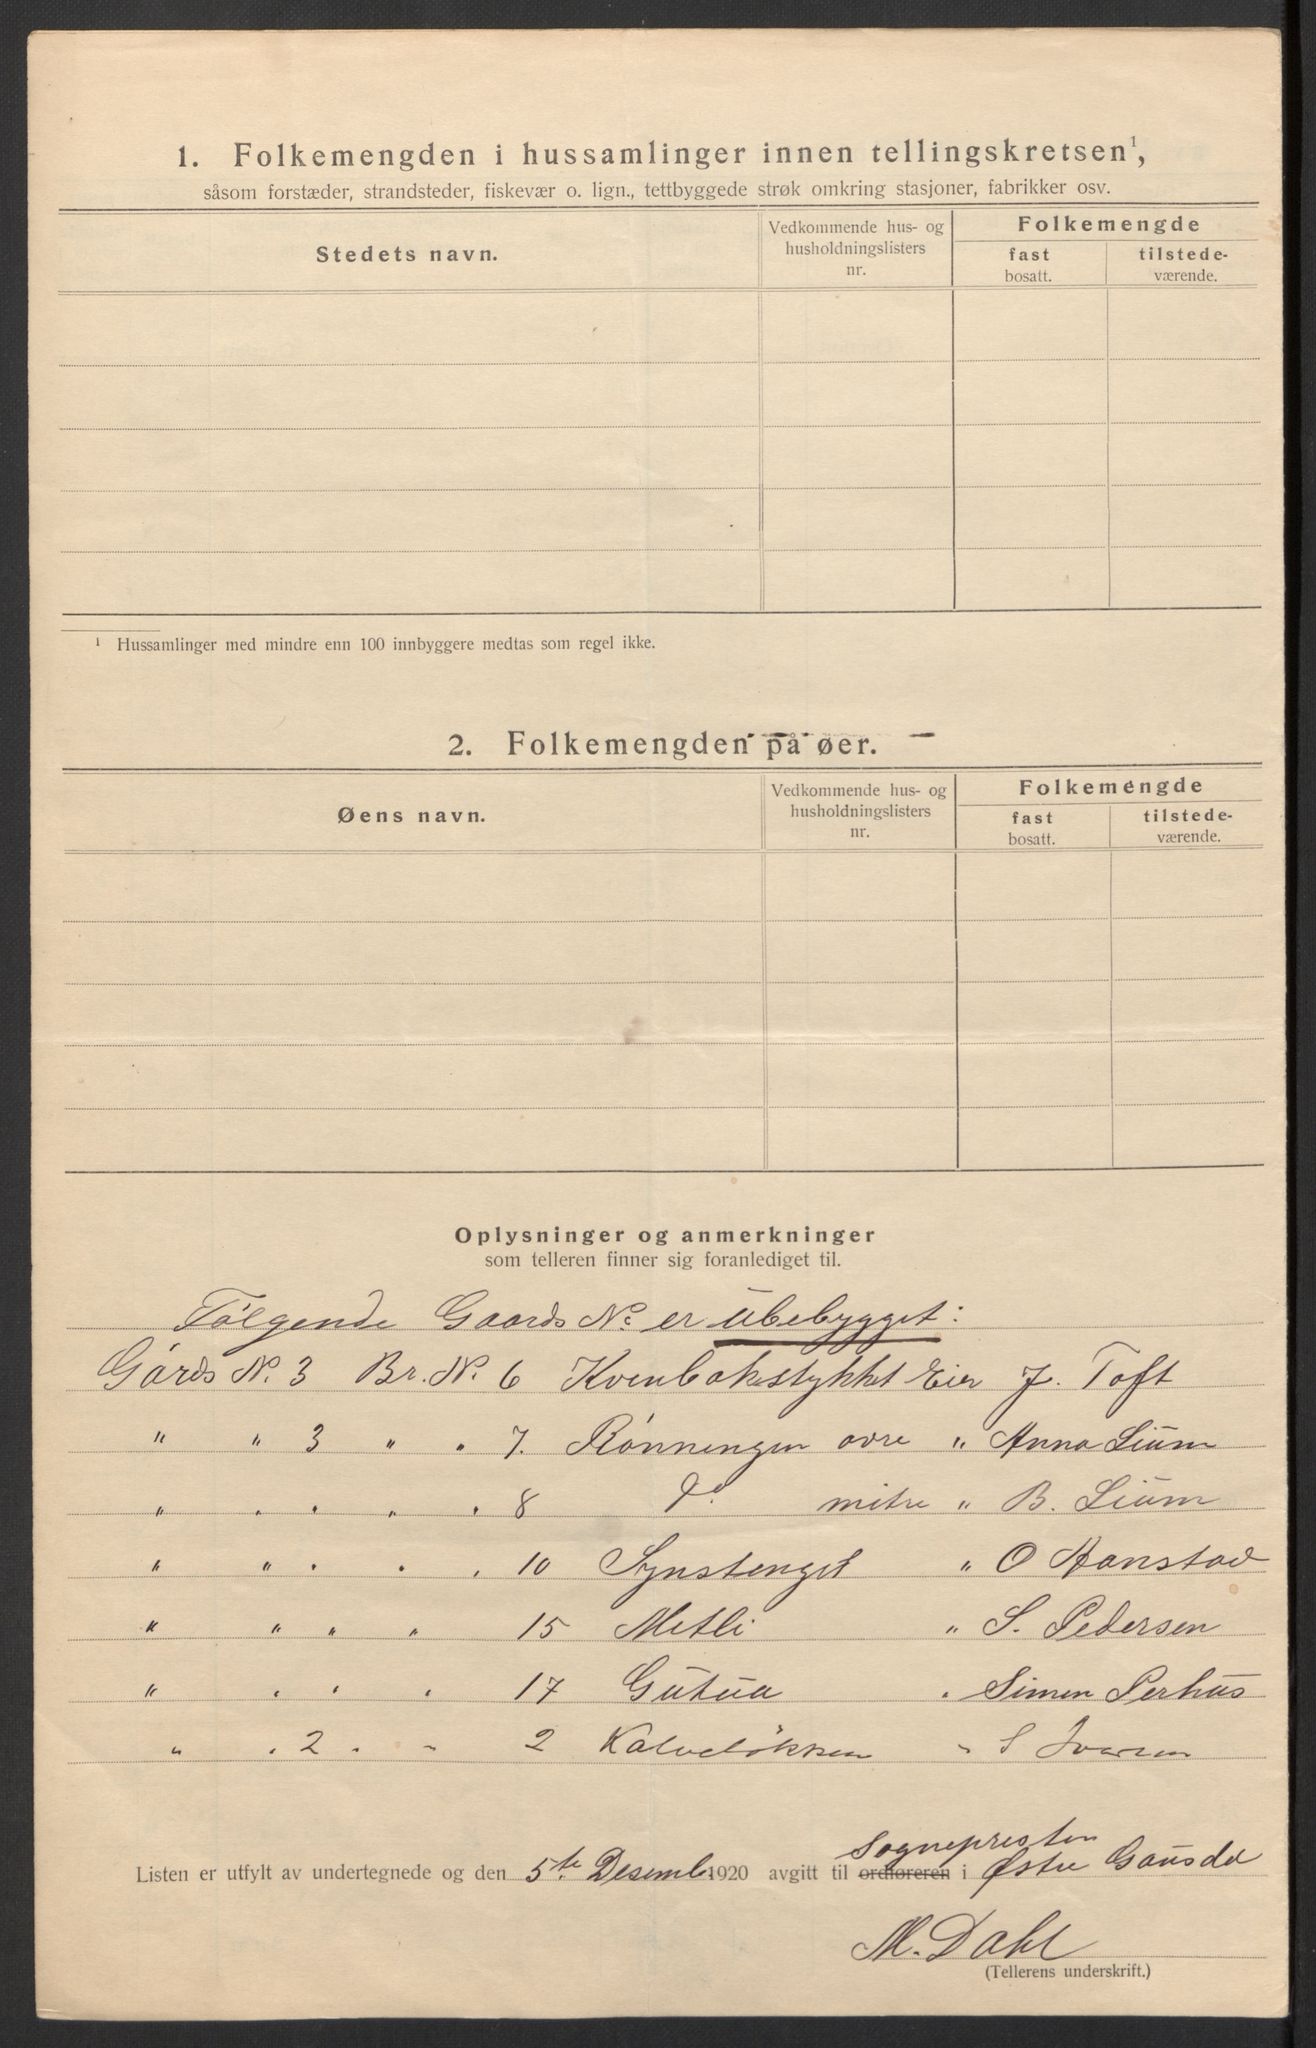 1. Folkemengden i hussamlinger innen tellingskretsen¹,
såsom forstæder, strandsteder, fiskevær o. lign., tettbyggede strøk omkring stasjoner, fabrikker osv.
Stedets navn.
Vedkommende hus- og
husholdningslisters
nr.
Folkemengde
fast
bosatt.
tilstede-
værende.
¹ Hussamlinger med mindre enn 100 innbyggere medtas som regel ikke.
2. Folkemengden på øer.
Øens navn.
Vedkommende hus- og
husholdningslisters
nr.
Folkemengde
fast
bosatt.
tilstede-
værende.
Oplysninger og anmerkninger
som telleren finner sig foranlediget til.
Følgende Gaards No er ubebygget:
Gårds N. 3 Br. N. 6 Kvenbakstykket Eier J. Toft
" " 3 " " 7. Rønningen øvre " Anna Lium
" " " " 8 do. mitre " B. Lium
" " " " " 10 Synstenget " O
" " " " 15 Metli " S. Pedersen
" " " " 17 Gutua " Simen Perhus
" " 2 " " 2 Kalveløkken " S Iversen
Sognepresten
Listen er utfylt av undertegnede og den 5te Desemb. 1920 avgitt til ordføreren i Østre Gausdal
M. Dahl
(Tellerens underskrift.)